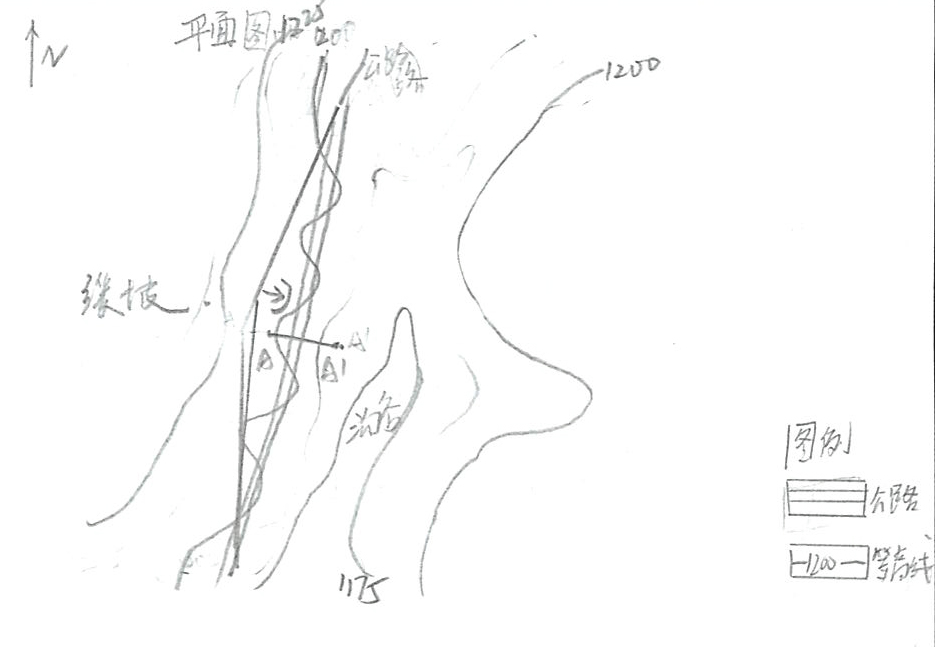 N
平面图
1225
1200
公路
1200
纵坡
A
A'
A'
沟谷
1175
图例
公路
1200
等高线